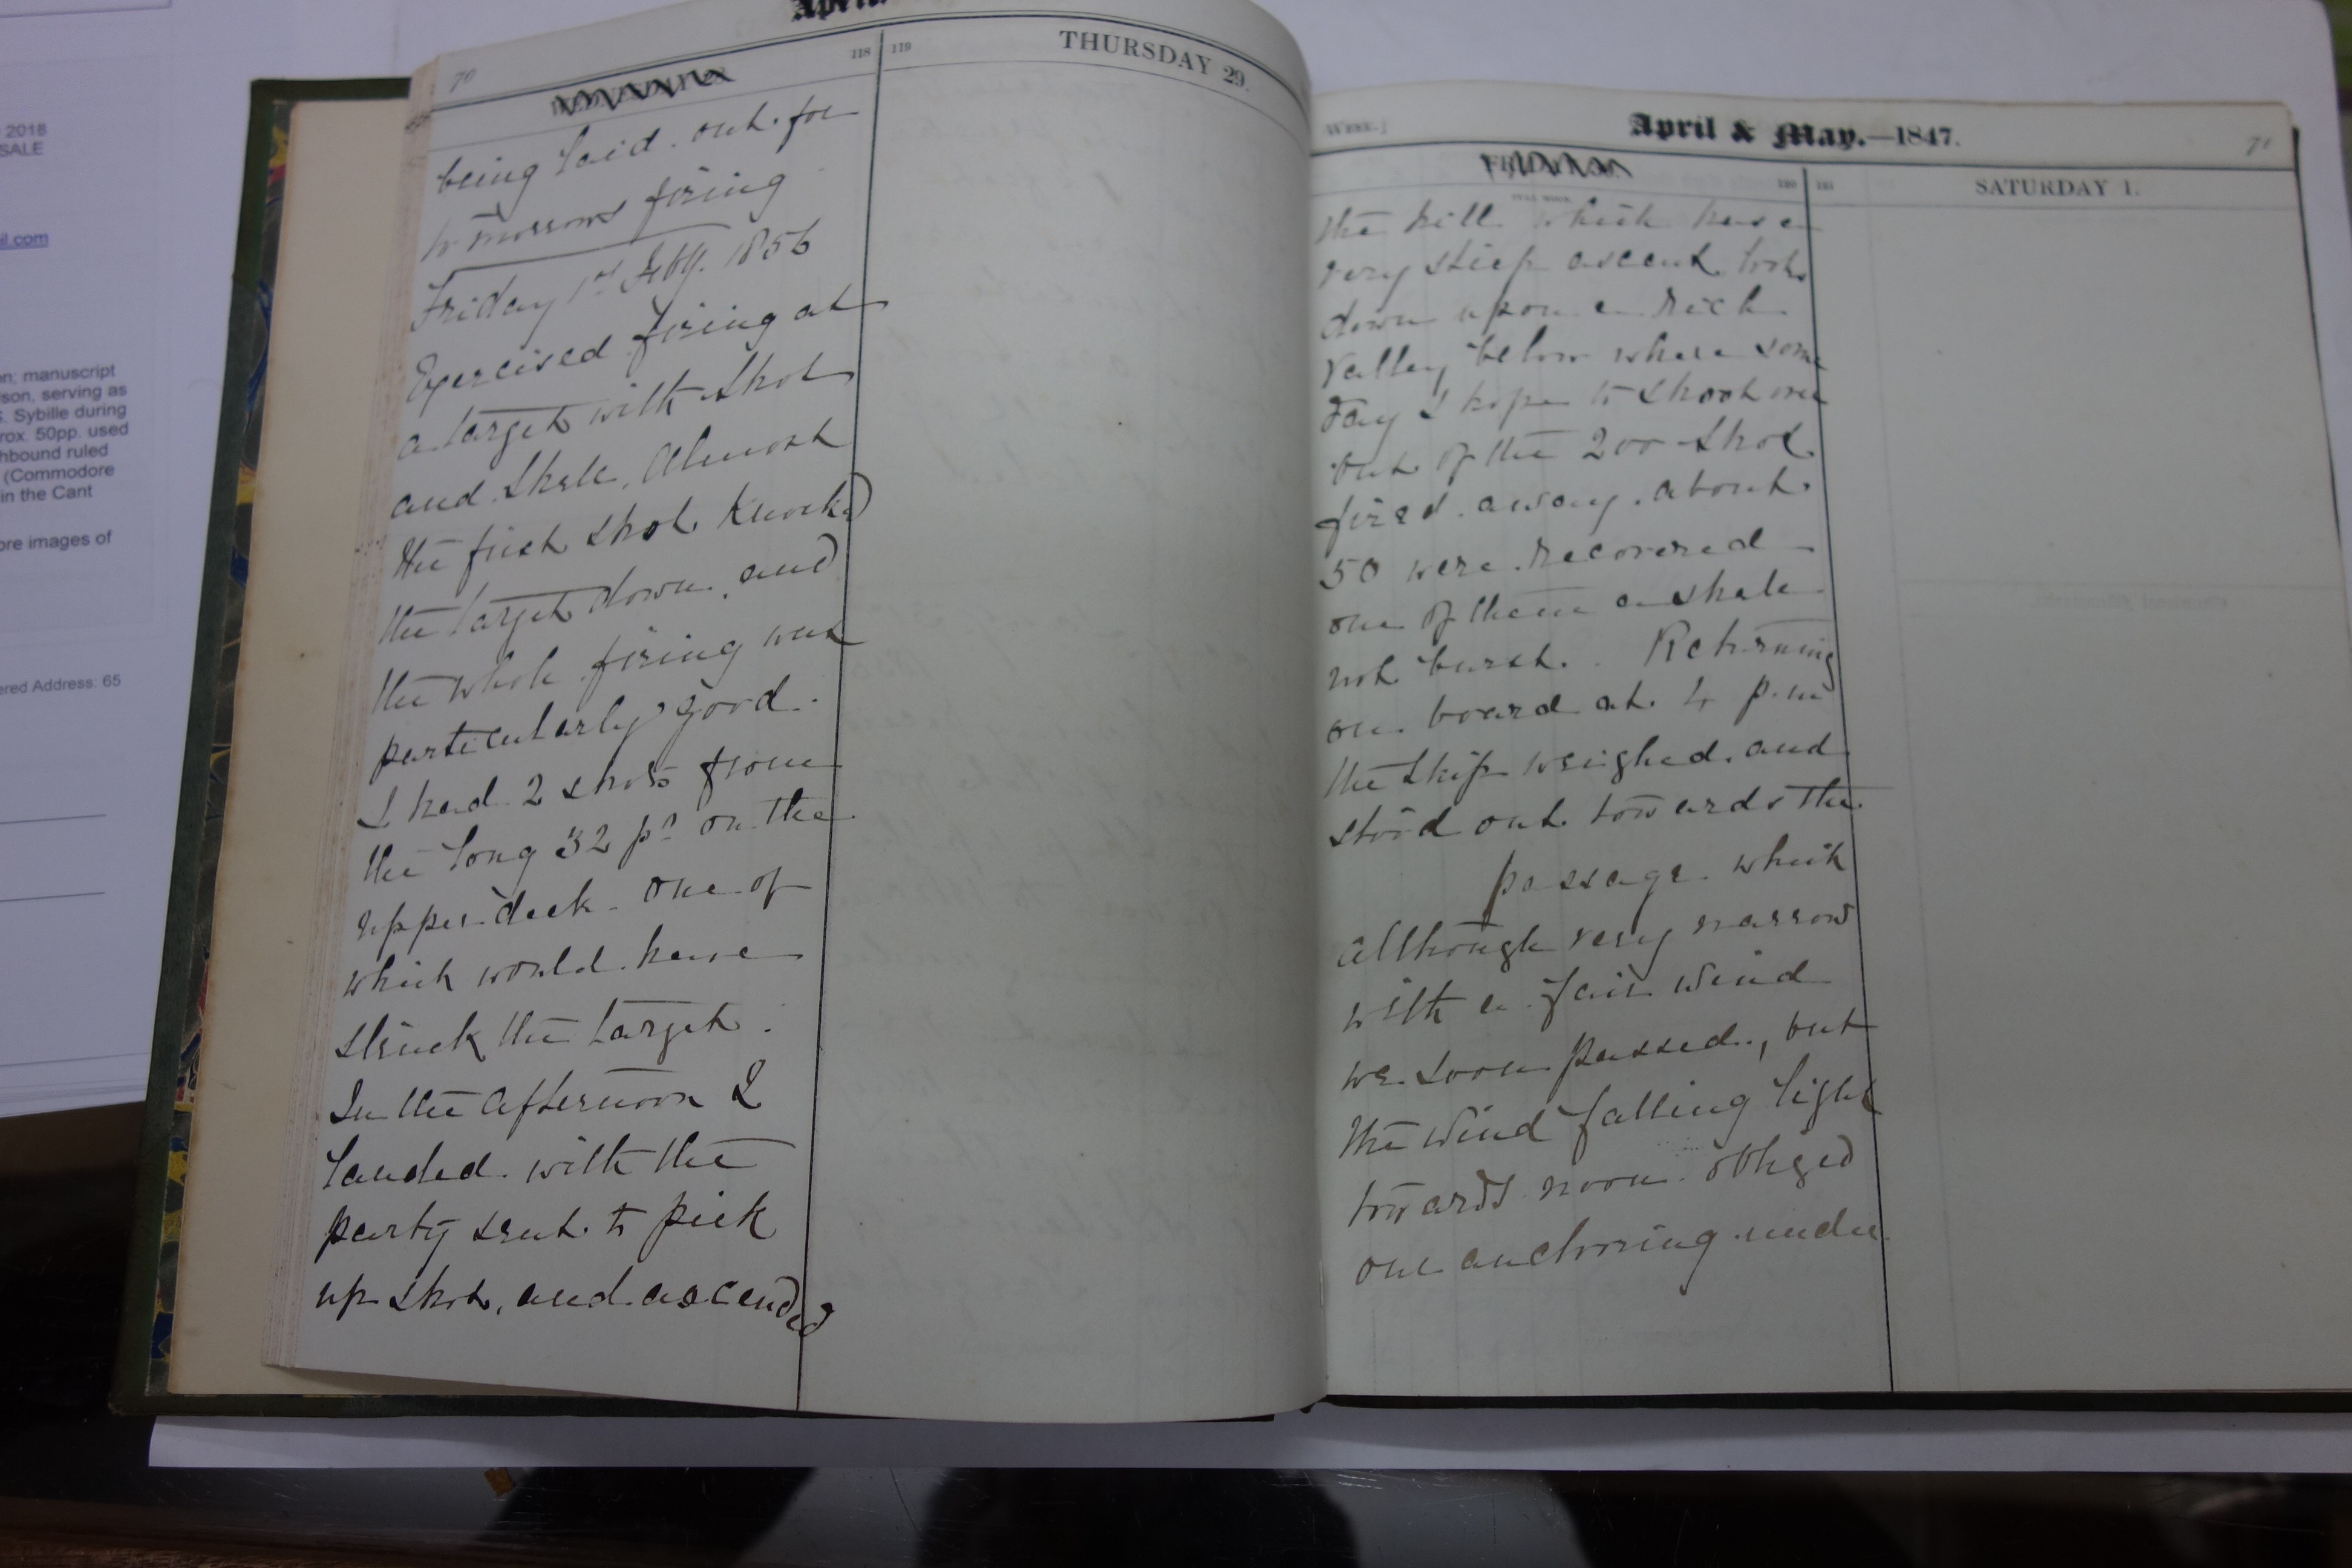 2018
SALE
il.com
on; manuscript
son, serving as
S. Sybille during
rox. 50pp. used
hbound ruled
(Commodore
in the Cant
ore images of
ered Address: 65
April
70
118
being laid out for
to morrows firing
Friday 1st Feby. 1856
Exercised firing at
a target with shot
and shell. Almost
the first shot knockd
the target down, and
the whole firing was
particularly good.
I had 2 shots from
the long 32 pr on the
upper deck one of
which would have
struck the target.
In the afternoon I
landed with the
party sent to pick
up shot, and ascended
119
THURSDAY 29.
WEEK.]
April & May.—1847.
71
FRIDAY 30.
120
FULL MOON
the hill which has a
very steep ascent, looks
down upon a rich
valley below where some
day I hope to shoot
out of the 200 shot
fired away about
50 were recovered
one of them a shell
not burst. Returning
on board at 4 p.m
the ship weighed and
stood out towards the
passage which
although very narrow
with a fair wind
we soon passed, but
the wind falling light
towards noon obliged
our anchoring under
121
SATURDAY 1.